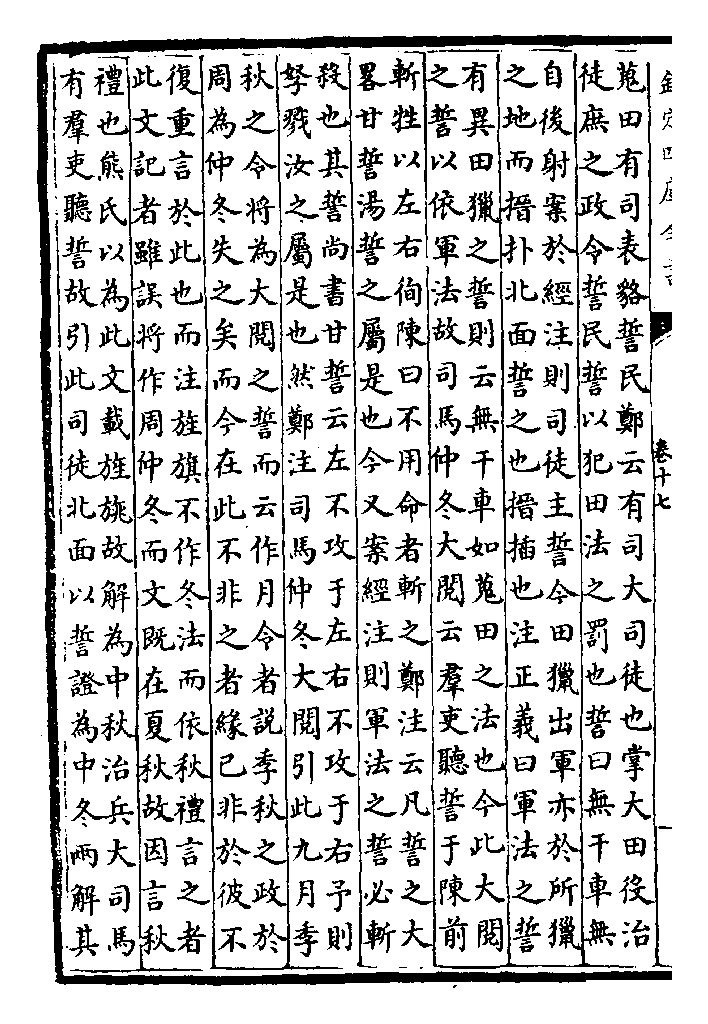 欽定四庫全書
卷十七
蒐田有司表貉誓民鄭云有司大司徒也掌大田役治
徒庶之政令誓民誓以犯田法之罰也誓曰無干車無
自後射案於經注則司徒主誓今田獵出軍亦於所獵
之地而搢扑北面誓之也搢插也注正義曰軍法之誓
有異田獵之誓則云無干車如蒐田之法也今此大閱
之誓以依軍法故司馬仲冬大閱云羣吏聽誓于陳前
斬牲以左右徇陳曰不用命者斬之鄭注云凡誓之大
畧甘誓湯誓之屬是也今又案經注則軍法之誓必斬
殺也其誓尚書甘誓云左不攻于左右不攻于右予則
孥戮汝之屬是也然鄭注司馬仲冬大閱引此九月季
秋之令將為大閱之誓而云作月令者説季秋之政於
周為仲冬失之矣而今在此不非之者緣已非於彼不
復重言於此也而注旌旗不作冬法而依秋禮言之者
此文記者雖誤將作周仲冬而文既在夏秋故因言秋
禮也熊氏以為此文載旌旐故解為中秋治兵大司馬
有羣吏聽誓故引此司徒北面以誓證為中冬兩解其